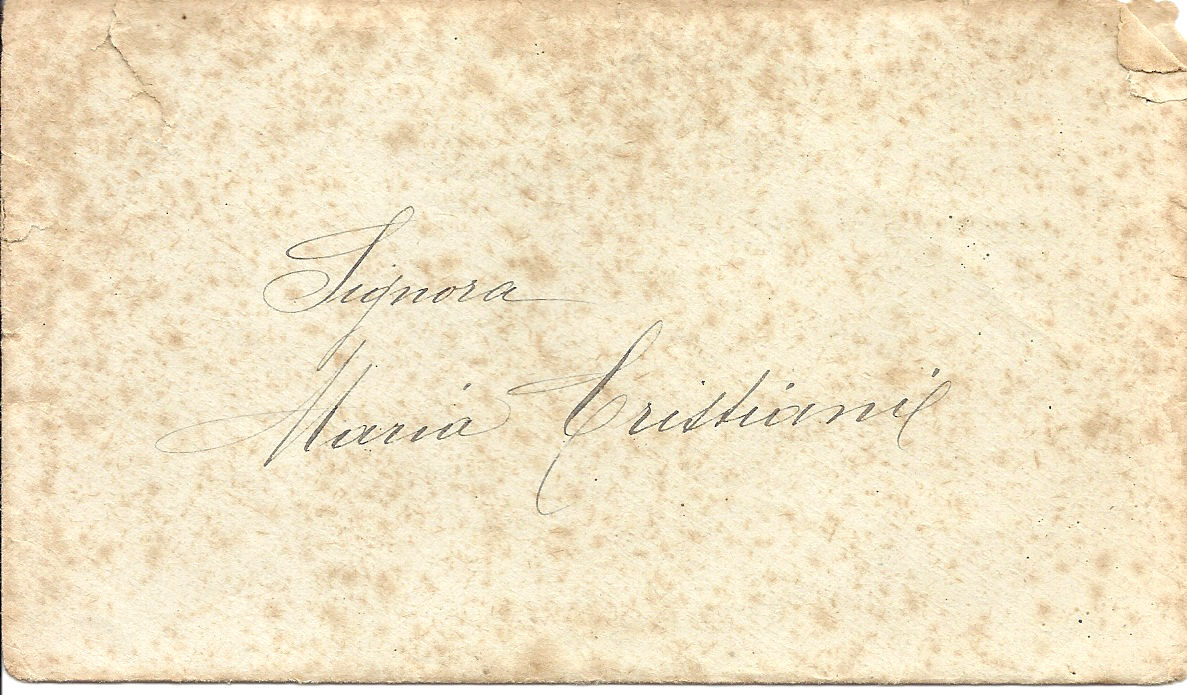 Signora
Maria Cristiani